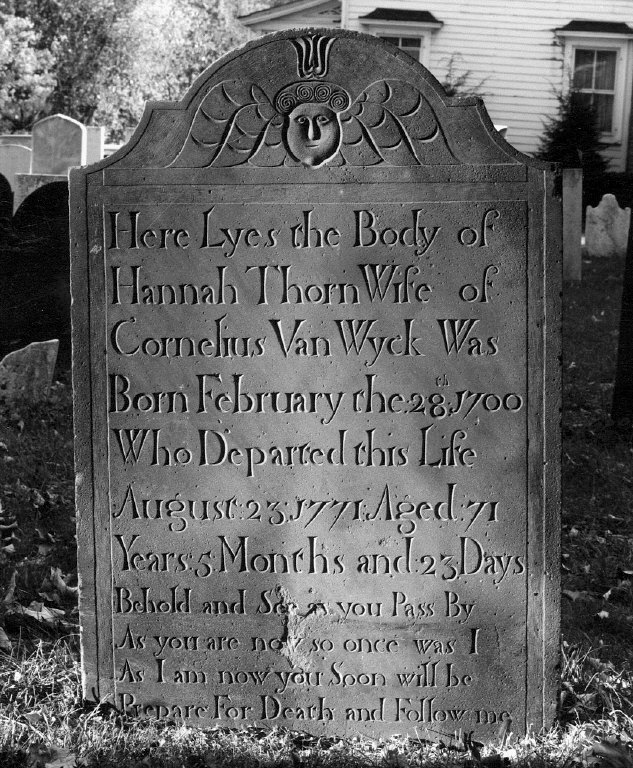 Here Lyes the Body of
Hannah Thorn Wife of
Cornelius Van Wyck Was
Born February the 28th 1700
Who Departed this Life
August 23 1771 Aged 71
Years 5 Months and 23 Days
Behold and See as you Pass By
As you are now so once was I
As I am now you Soon will be
Prepare For Death and Follow me